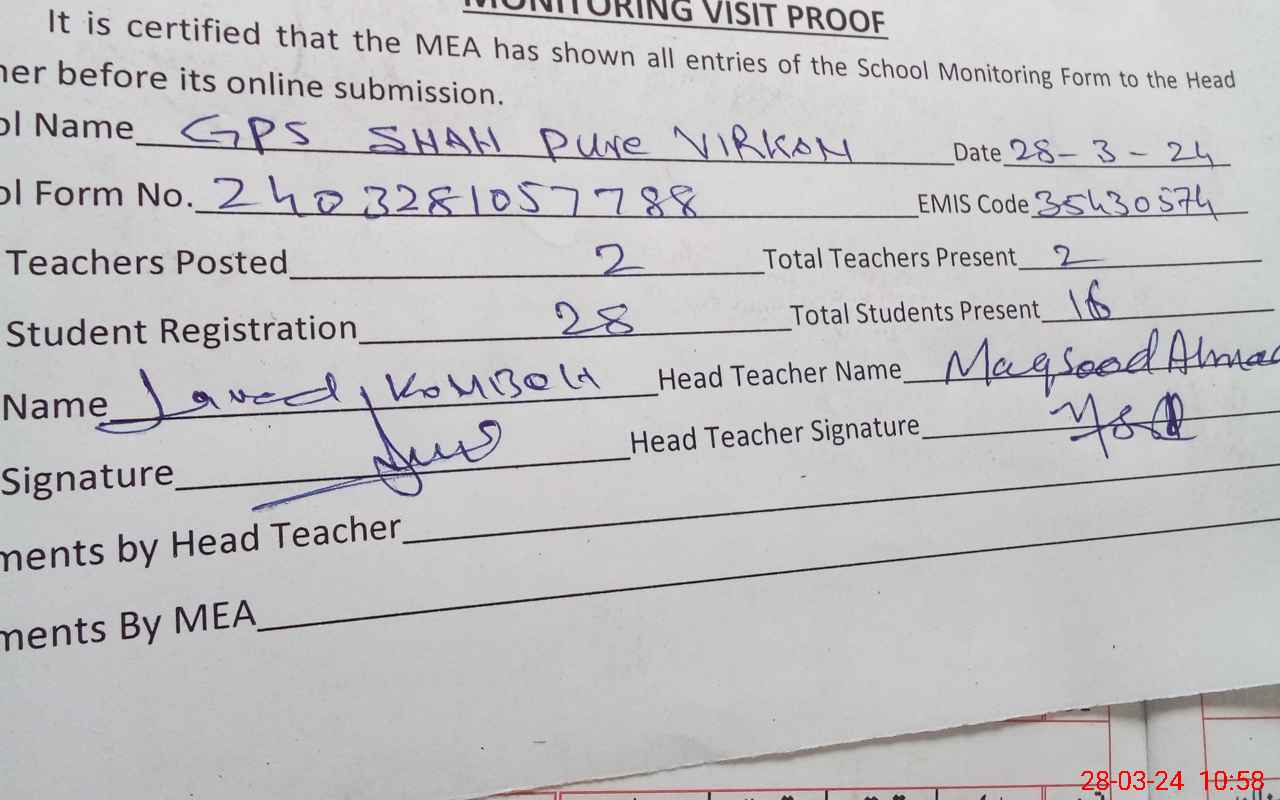 MONITORING VISIT PROOF
It is certified that the MEA has shown all entries of the School Monitoring Form to the Head
her before its online submission.
ol Name GPS SHAH PURE VIRKAN Date 28-3-24
ol Form No. 2403281057788 EMIS Code 35430574
Teachers Posted 2 Total Teachers Present 2
Student Registration 28 Total Students Present 16
Name Javed, KOMBOH Head Teacher Name Maqsood Ahmad
Signature Head Teacher Signature
ments by Head Teacher
ments By MEA
28-03-24 10:58